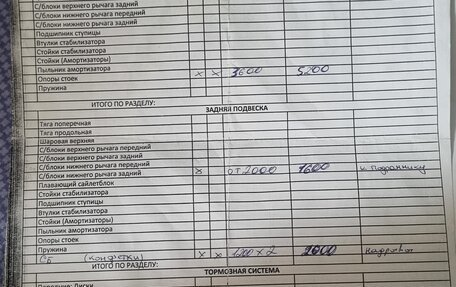 С/блоки верхнего рычага задний
С/блоки нижнего рычага передний
С/блоки нижнего рычага задний
Подшипник ступицы
Втулки стабилизатора
Стойки стабилизатора
Стойки (Амортизаторы)
Пыльник амортизатора
Опоры стоек x x 3600 5200
Пружина
ИТОГО ПО РАЗДЕЛУ:
ЗАДНЯЯ ПОДВЕСКА
Тяга поперечная
Тяга продольная
Шаровая верхняя
С/блоки верхнего рычага передний
С/блоки верхнего рычага задний
С/блоки нижнего рычага передний
С/блоки нижнего рычага задний x от 2000 1600
Плавающий сайлетблок
Стойки стабилизатора
Подшипник ступицы
Втулки стабилизатора
Стойки (Амортизаторы)
Пыльник амортизатора
Опоры стоек
Пружина
СБ (конфетки) x x 1200 x 2 2600
ИТОГО ПО РАЗДЕЛУ:
ТОРМОЗНАЯ СИСТЕМА